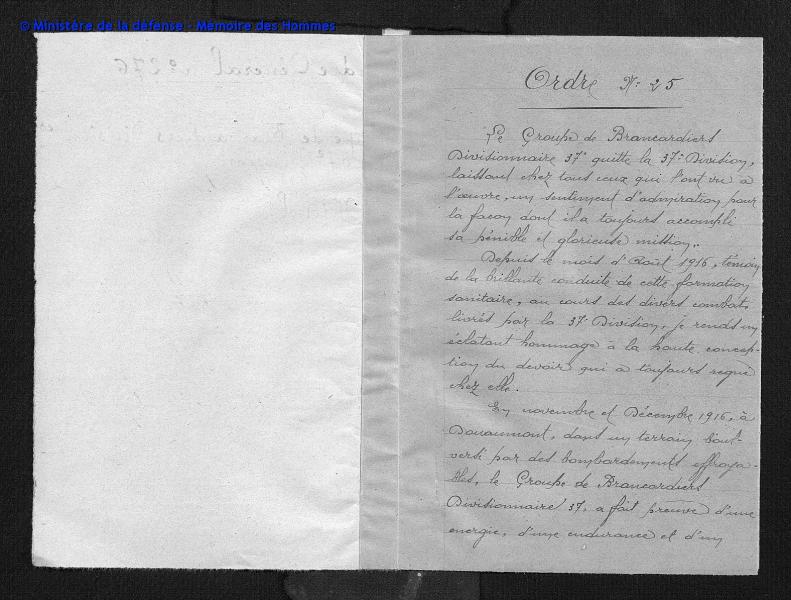 © Ministère de la défense - Mémoire des Hommes
Ordre N: 25
Le Groupe de Brancardiers
Divisionnaire 37e quitte la 37e Division,
laissant chez tous ceux qui l'ont vu à
l'œuvre, un sentiment d'admiration pour
la façon dont il a toujours accompli
sa pénible et glorieuse mission.
Depuis le mois d'Août 1916, témoin
de la brillante conduite de cette formation
sanitaire, au cours des divers combats
livrés par la 37e Division, je rends un
éclatant hommage à la haute concep-
tion du devoir qui a toujours régné
chez elle.
En novembre et Décembre 1916, à
Douaumont, dans un terrain boule-
versé par des bombardements effroya-
bles, le Groupe de Brancardiers
Divisionnaire 37, a fait preuve d'une
energie, d'une endurance et d'un